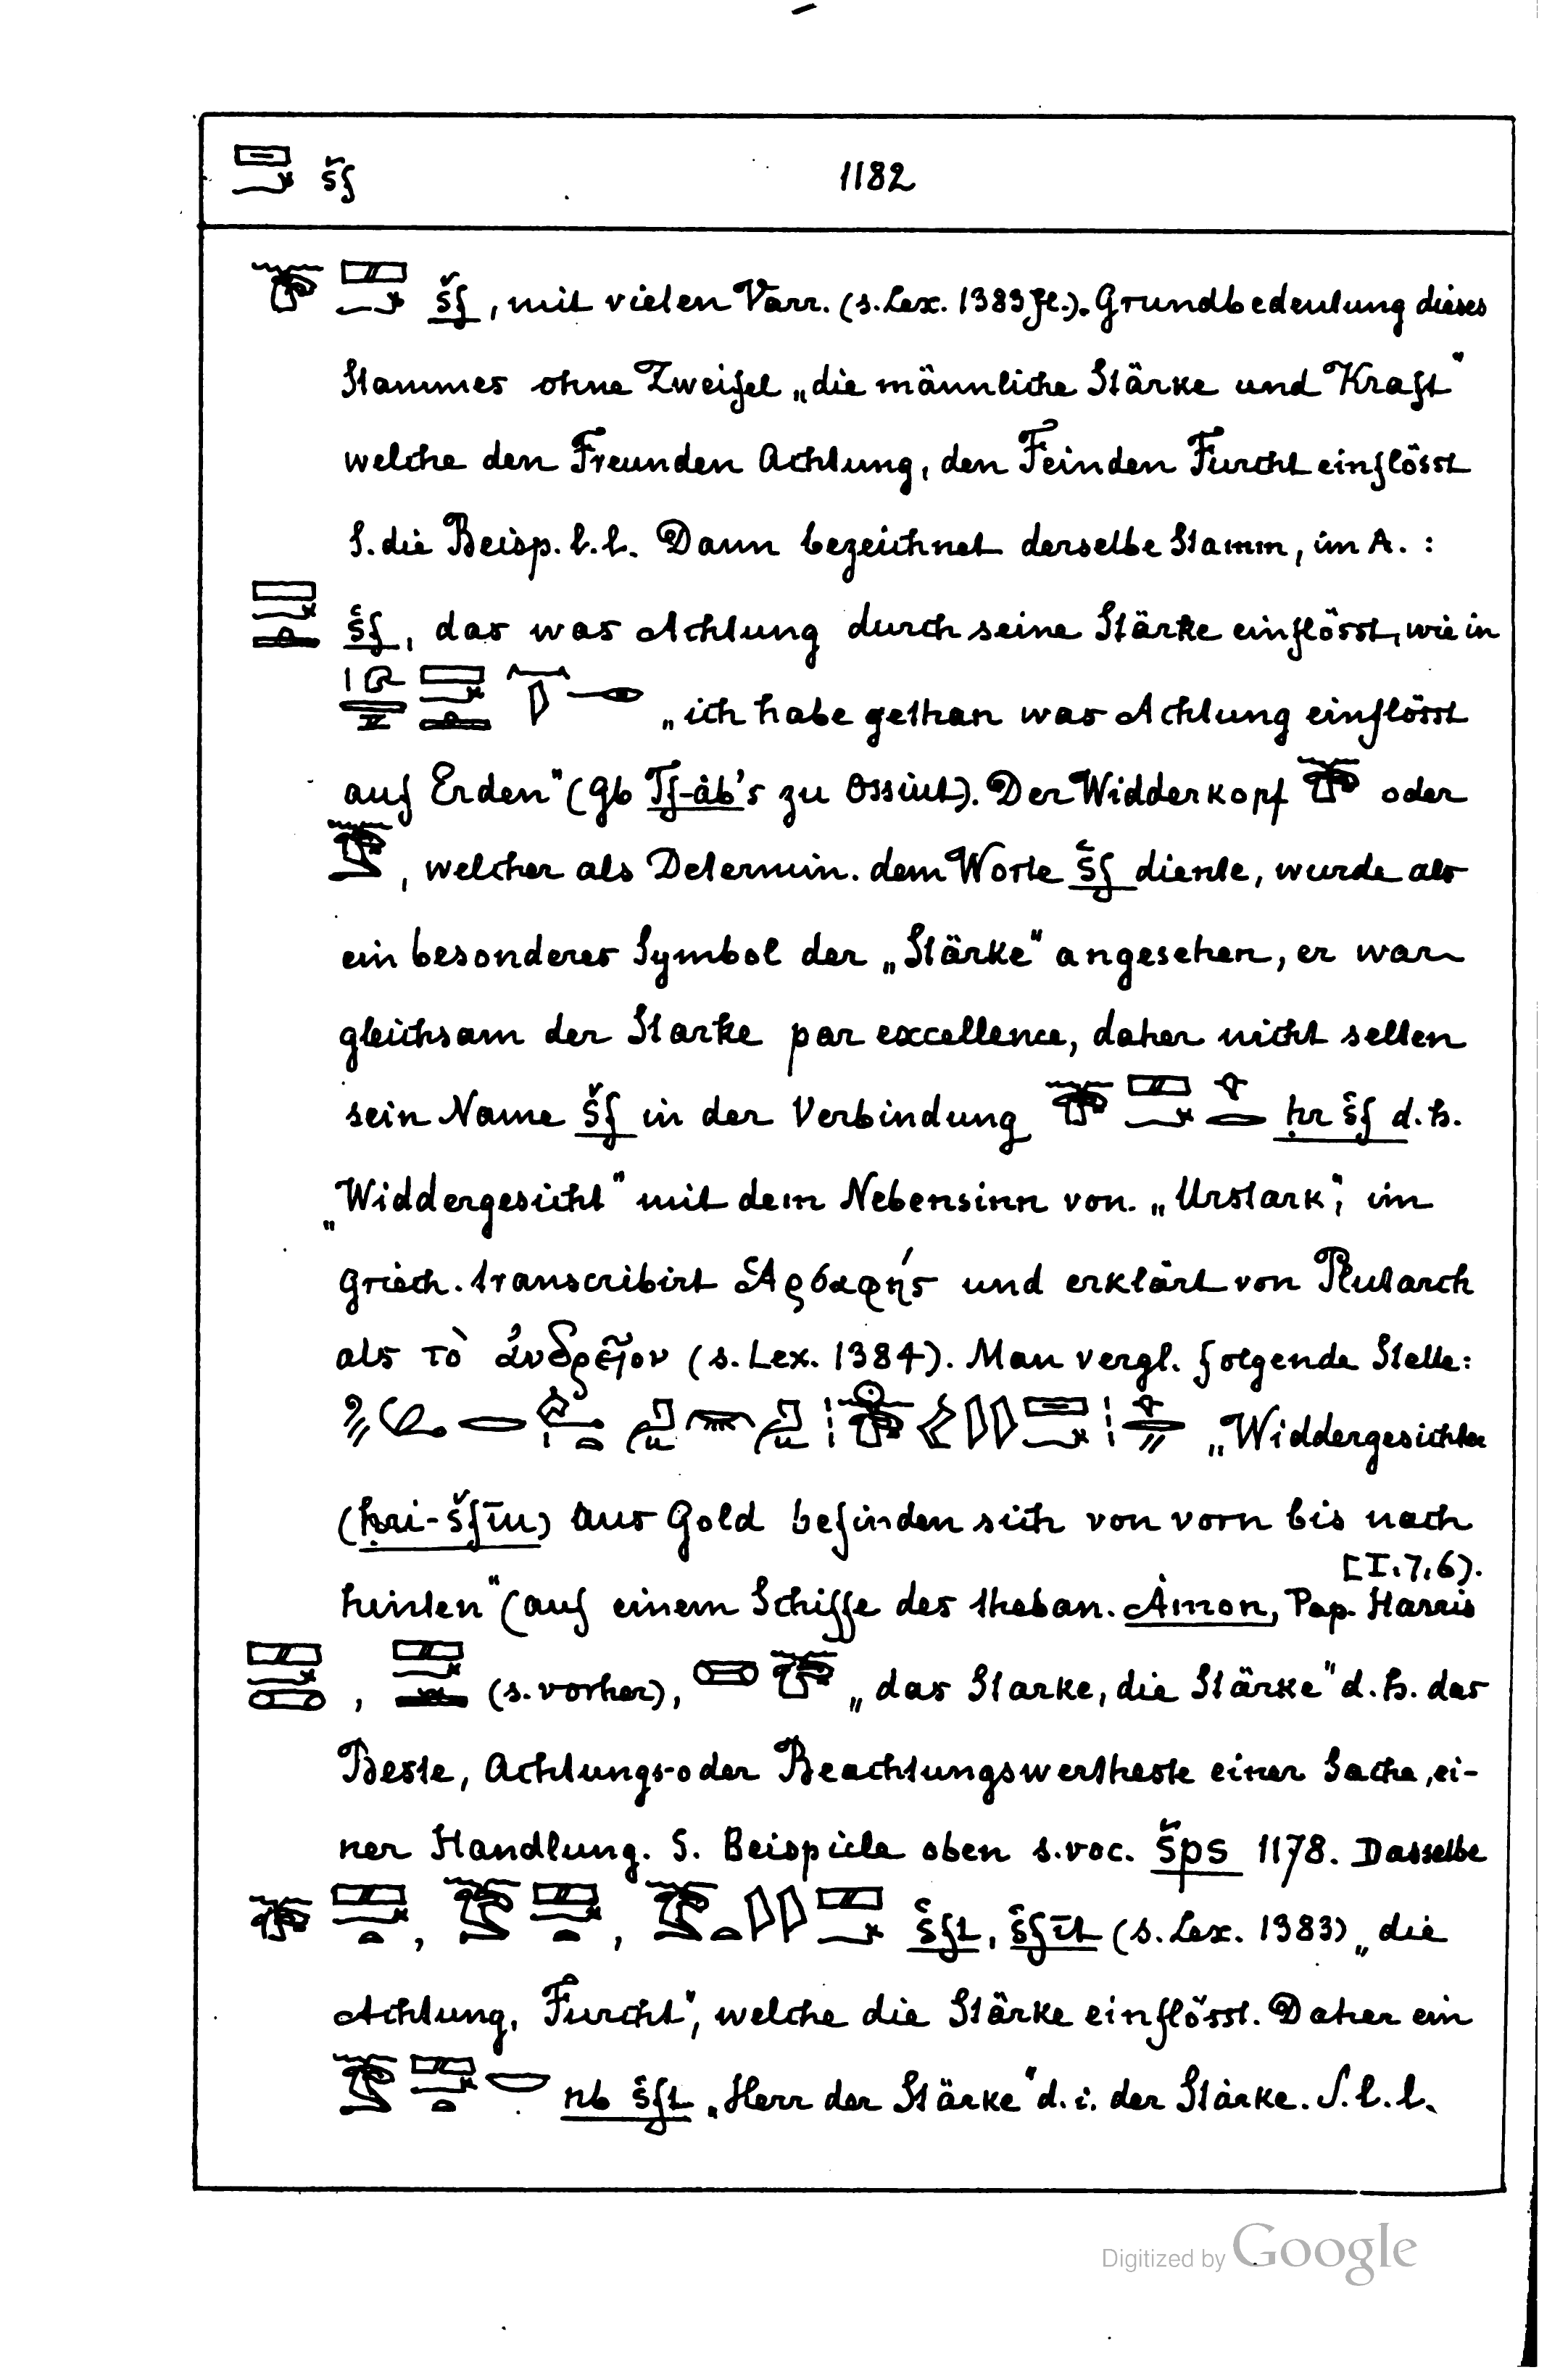 šf 1182
šf, mit vielen Varr. (s. Lex. 1383 fl.). Grundbedeutung dieses
Stammes ohne Zweifel „die männliche Stärke und Kraft"
welche den Freunden Achtung, den Feinden Furcht einflösst
S. die Beisp. l. l. Dann bezeichnet derselbe Stamm, im A. :
šf, das was Achtung durch seine Stärke einflösst, wie in
„ich habe gethan was Achtung einflösst
auf Erden" (Gb Tf-àb's zu Ossiut). Der Widderkopf oder
, welcher als Determin. dem Worte šf diente, wurde als
ein besonderes Symbol der „Stärke" angesehen, er war
gleichsam der Starke par excellence, daher nicht selten
sein Name šf in der Verbindung ḥr šf d. h.
„Widdergesicht" mit dem Nebensinn von „Urstark", im
Griech. transcribirt Ἀρσαφής und erklärt von Plutarch
als τὸ ἀνδρεῖον (s. Lex. 1384). Man vergl. folgende Stelle:
„Widdergesichter
(ḥri-šfīu) aus Gold befinden sich von vorn bis nach
[I, 7, 6).
hinten" (auf einem Schiffe des theban. Ȧmon, Pap. Harris
, (s. vorher), „das Starke, die Stärke" d. h. das
Beste, Achtungs- oder Beachtungswertheste einer Sache, ei-
ner Handlung. S. Beispiele oben s. voc. šps 1178. Dasselbe
, , šft, šfīt (s. Lex. 1383) „die
Achtung, Furcht", welche die Stärke einflösst. Daher ein
nb šft „Herr der Stärke" d. i. der Starke. S. l. l.
Digitized by Google